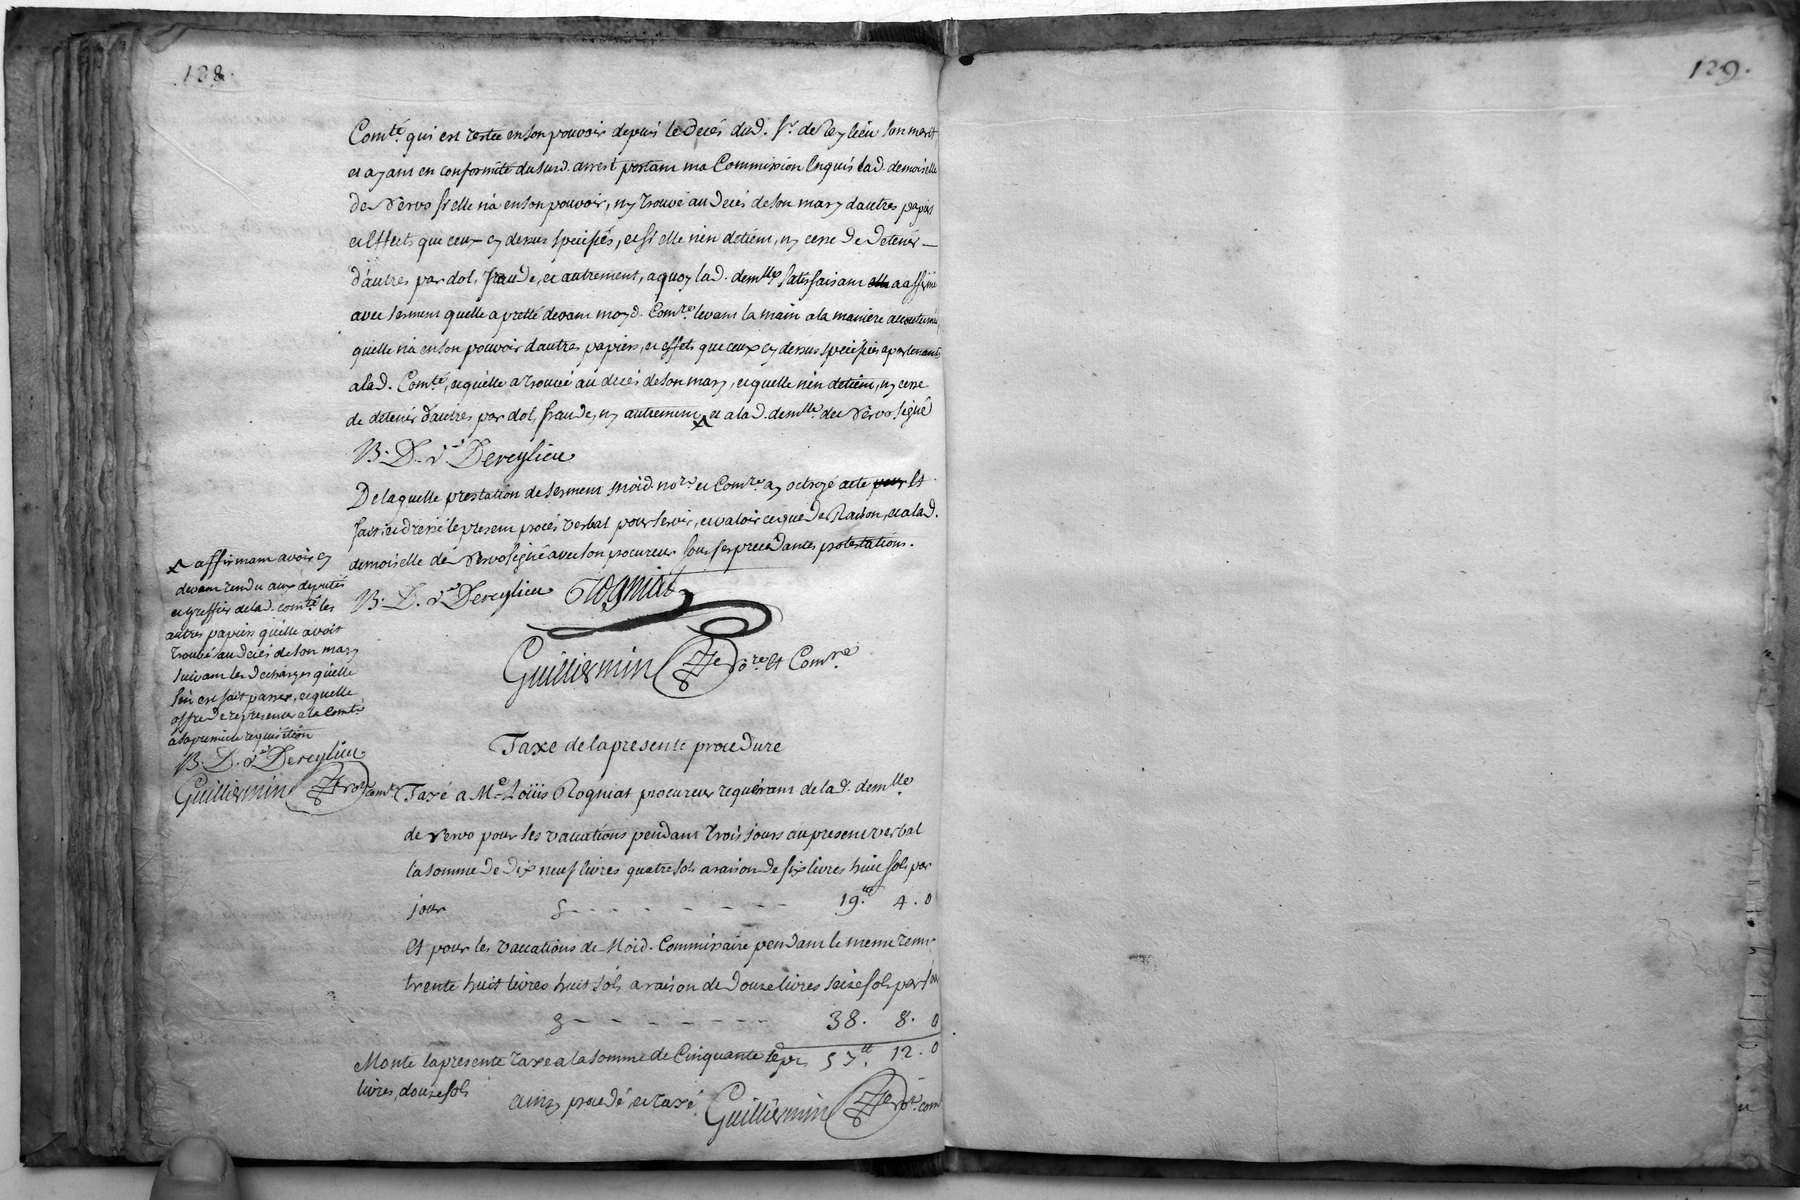 128.
Comté. qui est restée en son pouvoir depuis le Decés dud. Sr. de Reylieu son marit
et ayant en conformité du susd. arrest portant ma Commission Enquis lad. demoiselle
de Vervo si elle n'a en son pouvoir, ny trouvé au Decés de son mary d'autres papiers
et Effects que ceux cy dessus speciffiés, et si elle n'en detient, ny cesse De Detenir
d'autres par dol, fraude, et autrement, a quoy lad. demlle satisfaisant a affirmé
avec serment quelle a pretté devant moyd. Comre. levant la main a la maniere accoutumée,
quelle n'a en son pouvoir dautres papiers, et effets que ceux cy dessus speciffiés apartenants
a lad. Comté, et qu'elle a trouvé au decés de son mary, et quelle n'en detient, ny cesse
de detenir d'autres par dol, fraude, ny autrement et a lad. demlle. de Vervo signé
B. D. v Dereylieu
De laquelle prestation de serment moid. nore. et Comre. ay octroyé acte Et
fait et dressé le present procés verbal pour servir, et valoir ce que de Raison, et a lad.
demoiselle de Vervo signé avec son procureur sous ses precedantes protestations.
B. D. v Dereylieu Rogniat
Guilliermin nore. et Comre
affirmant avoir cy
devant rendu aux deputés
et greffier de lad. comté les
autres papiers qu'elle avoit
trouvé au decés de son mary
suivant les décharges qu'elle
s'en est fait passer, et quelle
offre de representer a la Comté
a la premiere requisition
B. D. v Dereylieu
Guilliermin nore comre
Taxe de la presente procedure
Taxé a Me. Loüis Rogniat procureur requerant de lad. demlle
de Vervo pour ses vacations pendant trois jours au present verbal
la somme De Dix neuf livres quatre sols a raison De six livres huit sols par
jour 19.tt 4. 0
Et pour les vacations de Moid. Commissaire pendant le meme tems
trente huit livres huit sols a raison de Douze livres seize sols par jour
38. 8. 0
Monte la presente taxe a la somme de Cinquante sept 57.tt 12. 0
livres, douze sols
ainsy procedé et taxé Guilliermin nore. comre
129.